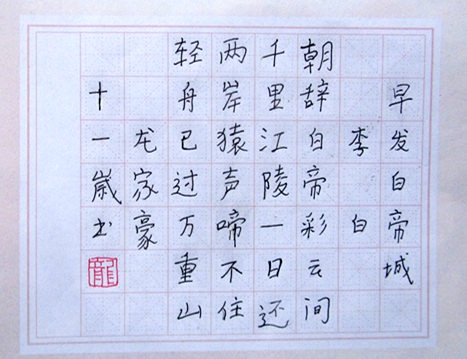 早发白帝城
李白
朝辞白帝彩云间
千里江陵一日还
两岸猿声啼不住
轻舟已过万重山
龙家豪
十一嵗书
龍